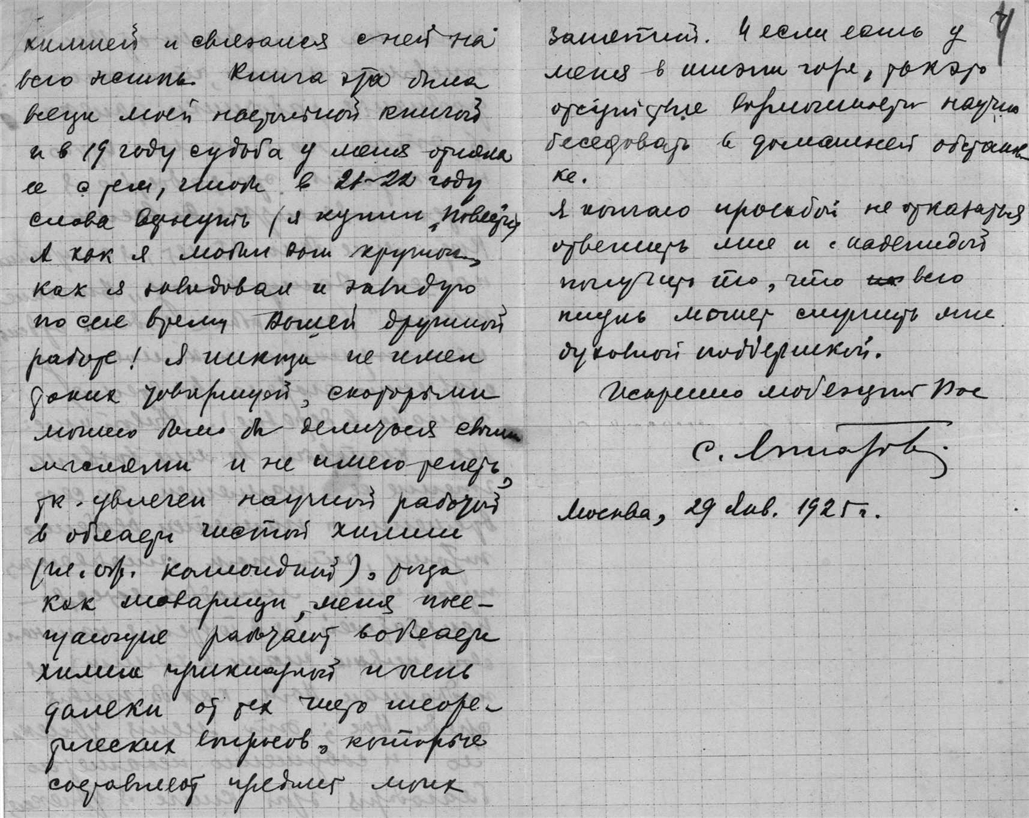 химией и связался с ней на
всю жизнь. Книга эта была
всегда моей настольной книгой
и в 19 году судьба у меня отняла
ее с тем, чтобы в 21-22 году
снова вернуть (я купил
А как я любил ваш кружок,
как я завидовал и завидую
по сие время Вашей дружной
работе! Я никогда не имел
таких товарищей, с которыми
можно было бы делиться своими
мыслями и не имею теперь,
т.к. увлечен научной работой
в области чистой химии
(гл. обр. коллоидной), тогда
как товарищи, меня посе-
щающие работают в области
химии прикладной и очень
далеки от тех чисто теоре-
тических вопросов, которые
составляют предмет моих
4
занятий. И если есть у
меня в жизни горе, так это
отсутствие возможности научно
беседовать в домашней обстанов-
ке.
Я кончаю просьбой не отказаться
ответить мне и с надеждой
получить то, что всю
жизнь может служить мне
духовной поддержкой.
Искренно любящий Вас
С.
Москва, 29 Янв. 1925 г.